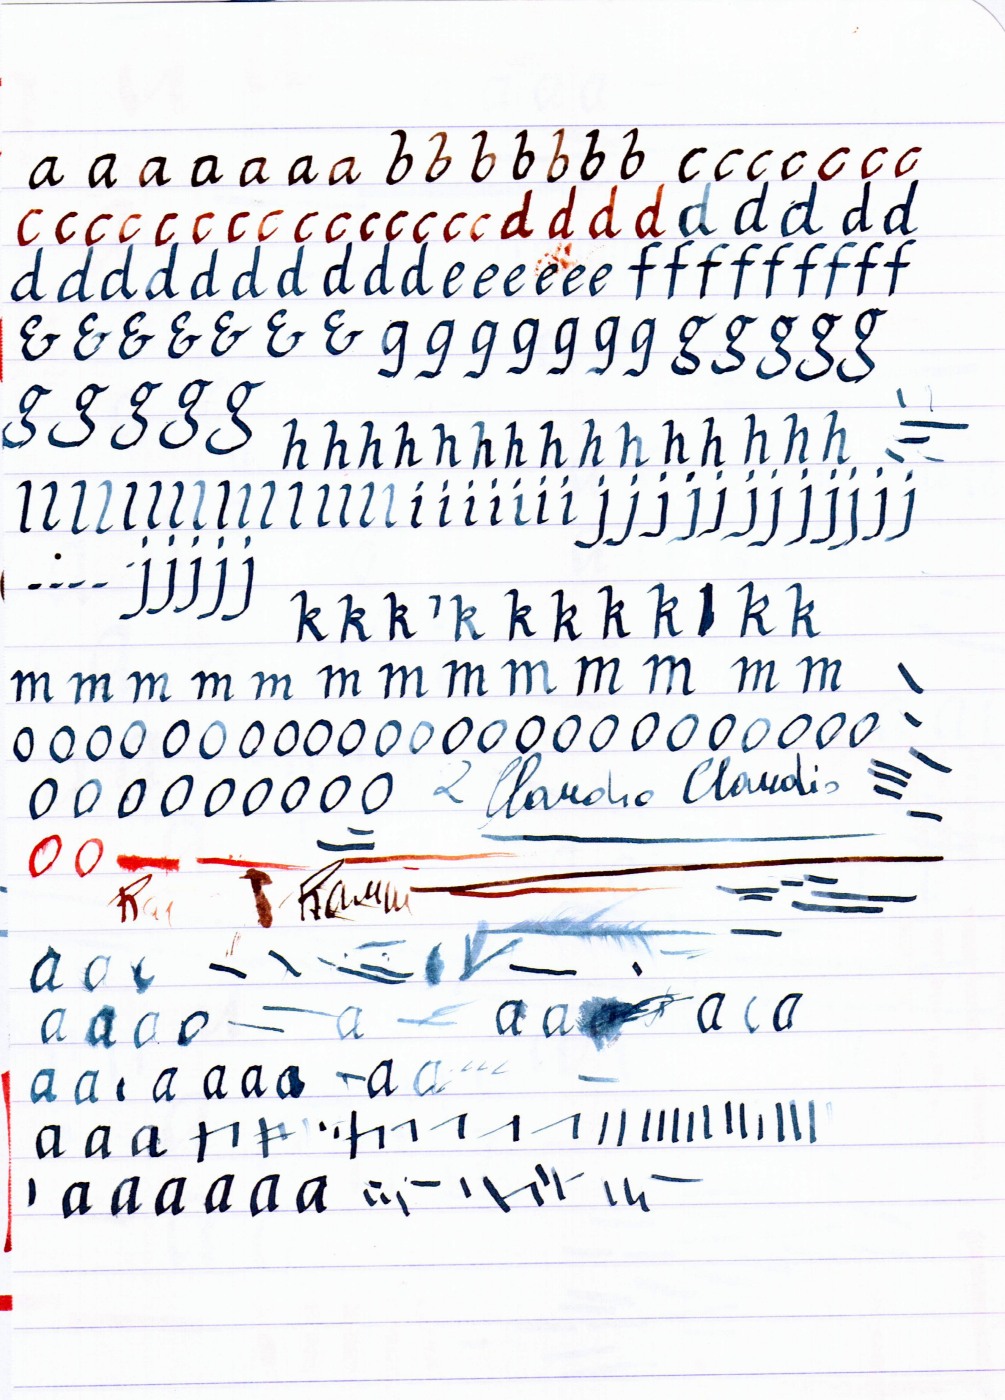 a a a a a a a b b b b b b b c c c c c c c
c c c c c c c c c c c c c c c d d d d d d d d d
d d d d d d d d d d e e e e e e f f f f f f f f f
& & & & & & & g g g g g g g g g g g g
g g g g g h h h h h h h h h h h h h h h
l l l l l l l l l l l l l l l l i i i i i i i j j j j j j j j j j j j
j j j j j
k k k k k k k k k k
m m m m m m m m m m m m m
o o o o o o o o o o o o o o o o o o o o o o o o
o o o o o o o o o 2 Claudio Claudio
o o
a o
a a a o a a a a c a
a a a a a a a a
a a a
a a a a a a